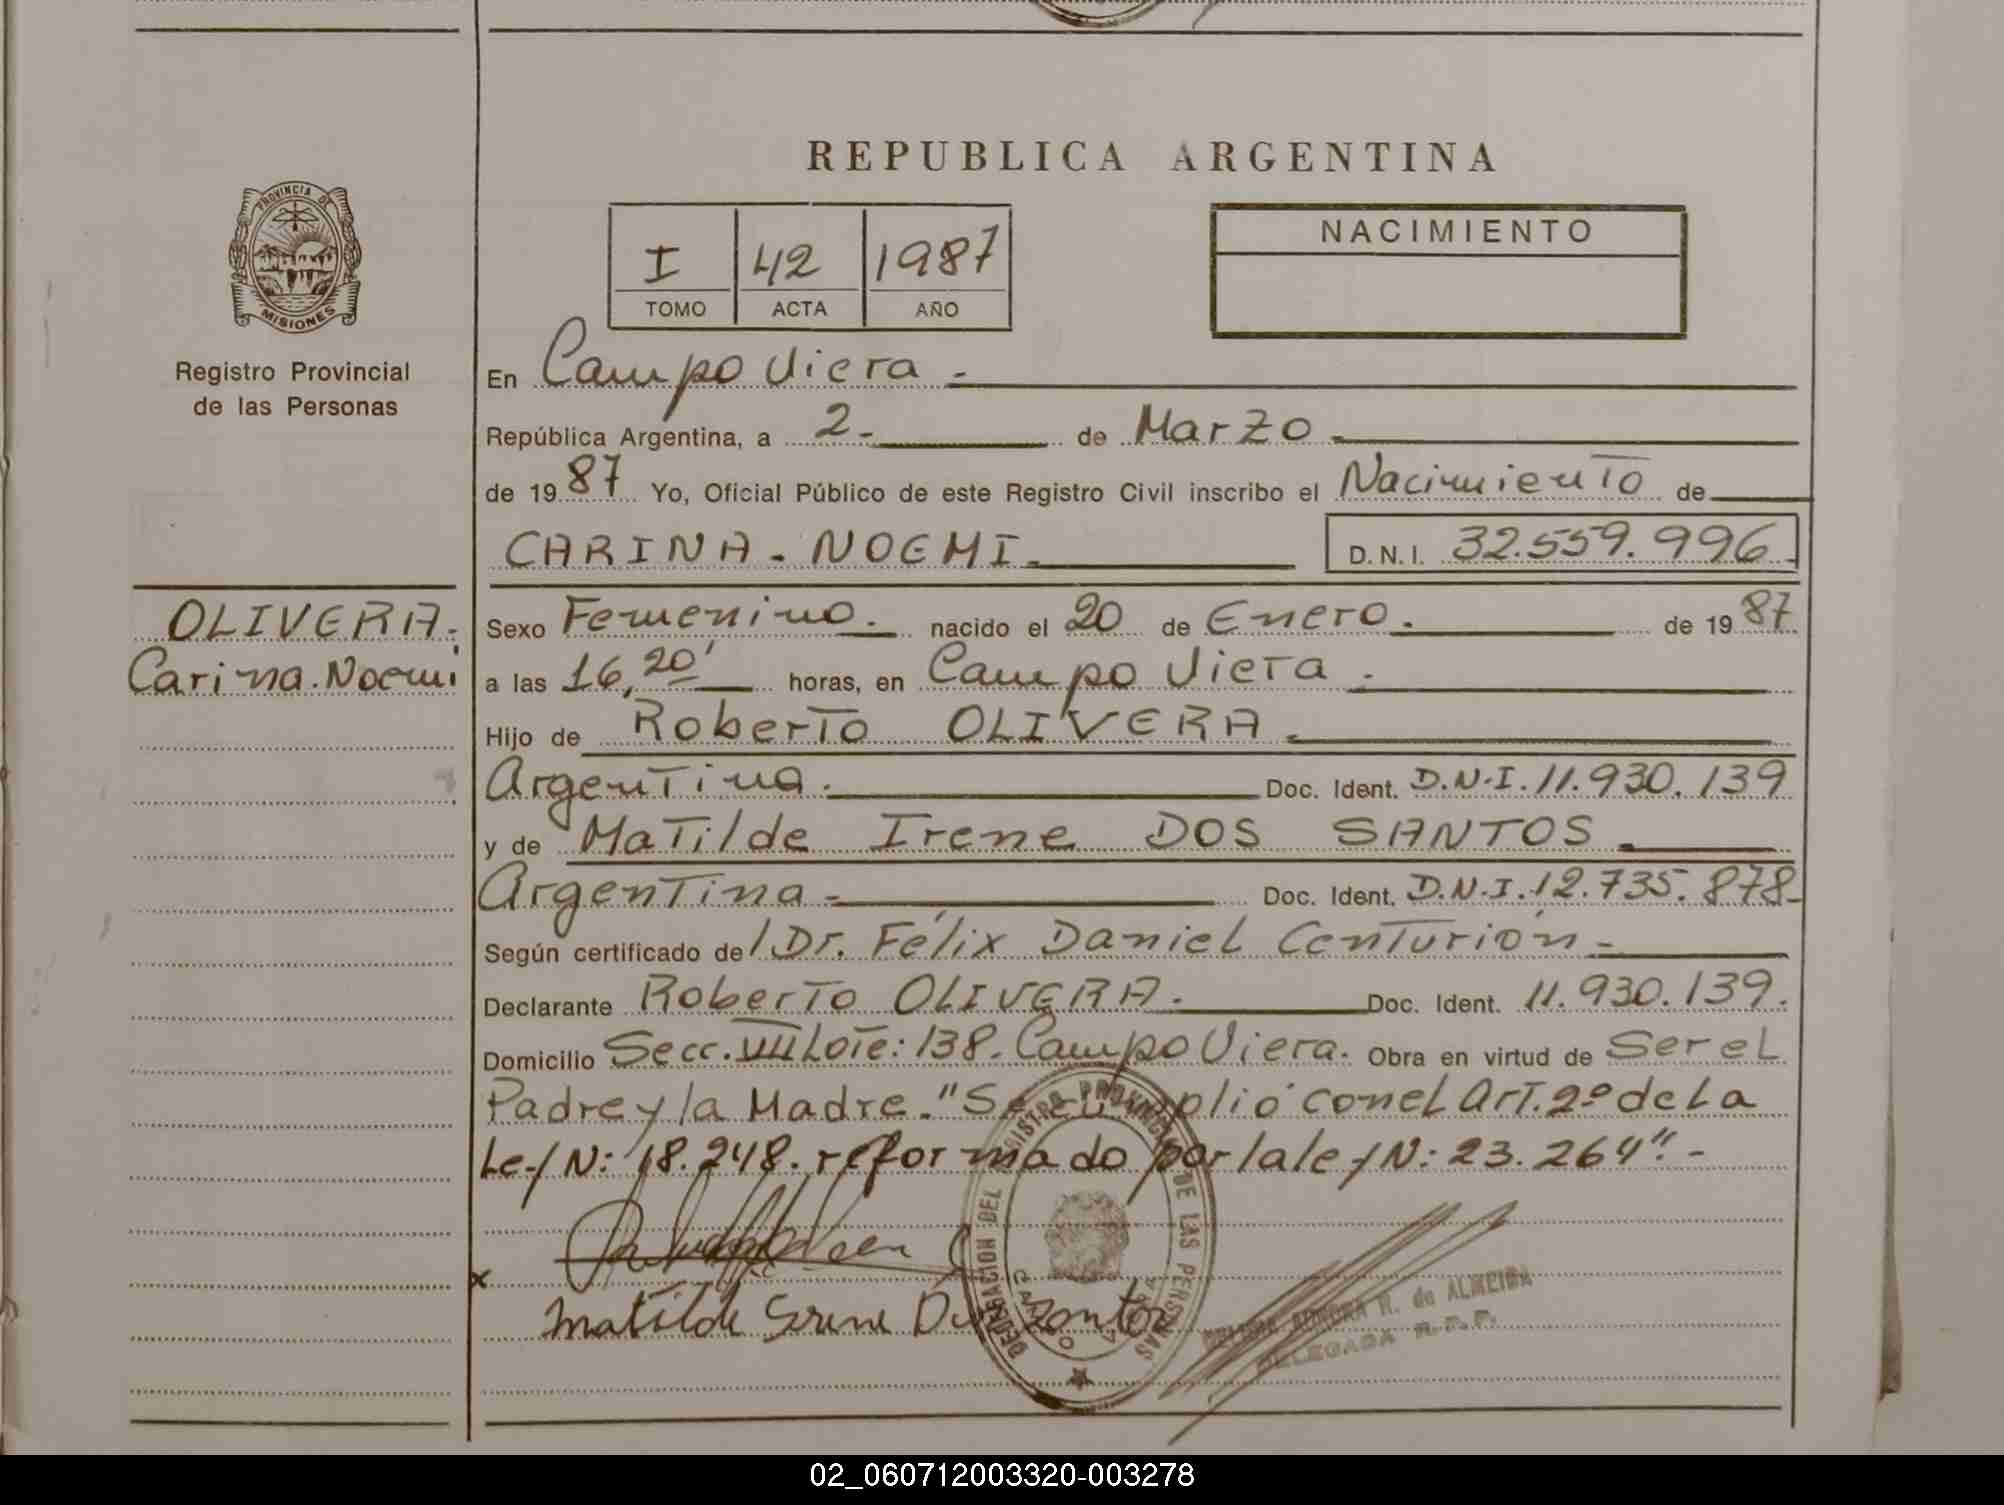 REPUBLICA ARGENTINA
PROVINCIA DE
MISIONES
Registro Provincial
de las Personas
I 42 1987
TOMO ACTA AÑO
NACIMIENTO
En Campo Viera.-
República Argentina, a 2- de Marzo
de 1987 Yo, Oficial Público de este Registro Civil inscribo el Nacimiento de
CARINA-NOEMI. D.N.I. 32.559.996
OLIVERA.
Carina.Noemi
Sexo Femenino. nacido el 20 de Enero. de 1987
a las 16,20' horas, en Campo Viera.
Hijo de Roberto OLIVERA.
Argentina. Doc. Ident. D.N.I. 11.930.139
y de Matilde Irene DOS SANTOS.
Argentina- Doc. Ident. D.N.I. 12.735.878-
Según certificado del Dr. Félix Daniel Centurión-
Declarante Roberto OLIVERA. Doc. Ident. 11.930.139.
Domicilio Secc. VIII Lote: 138. Campo Viera. Obra en virtud de Ser el
Padre y la Madre. "Se cumplió con el Art. 2º de la
Ley N: 18.248. reformado por la ley N: 23.264".-
x
Matilde Irene Dos Zantos
DELEGACION DEL REGISTRO PROVINCIAL DE LAS PERSONAS
CAMPO VIERA
AURORA R. de ALMEIDA
DELEGADA R.P.P.
02_060712003320-003278